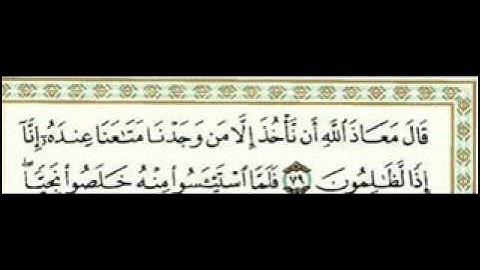 قَالَ مَعَاذَ ٱللَّهِ أَن نَّأۡخُذَ إِلَّا مَن وَجَدۡنَا مَتَٰعَنَا عِندَهُۥٓ إِنَّآ
إِذٗا لَّظَٰلِمُونَ ٧٩ فَلَمَّا ٱسۡتَيۡـَٔسُواْ مِنۡهُ خَلَصُواْ نَجِيّٗاۖ